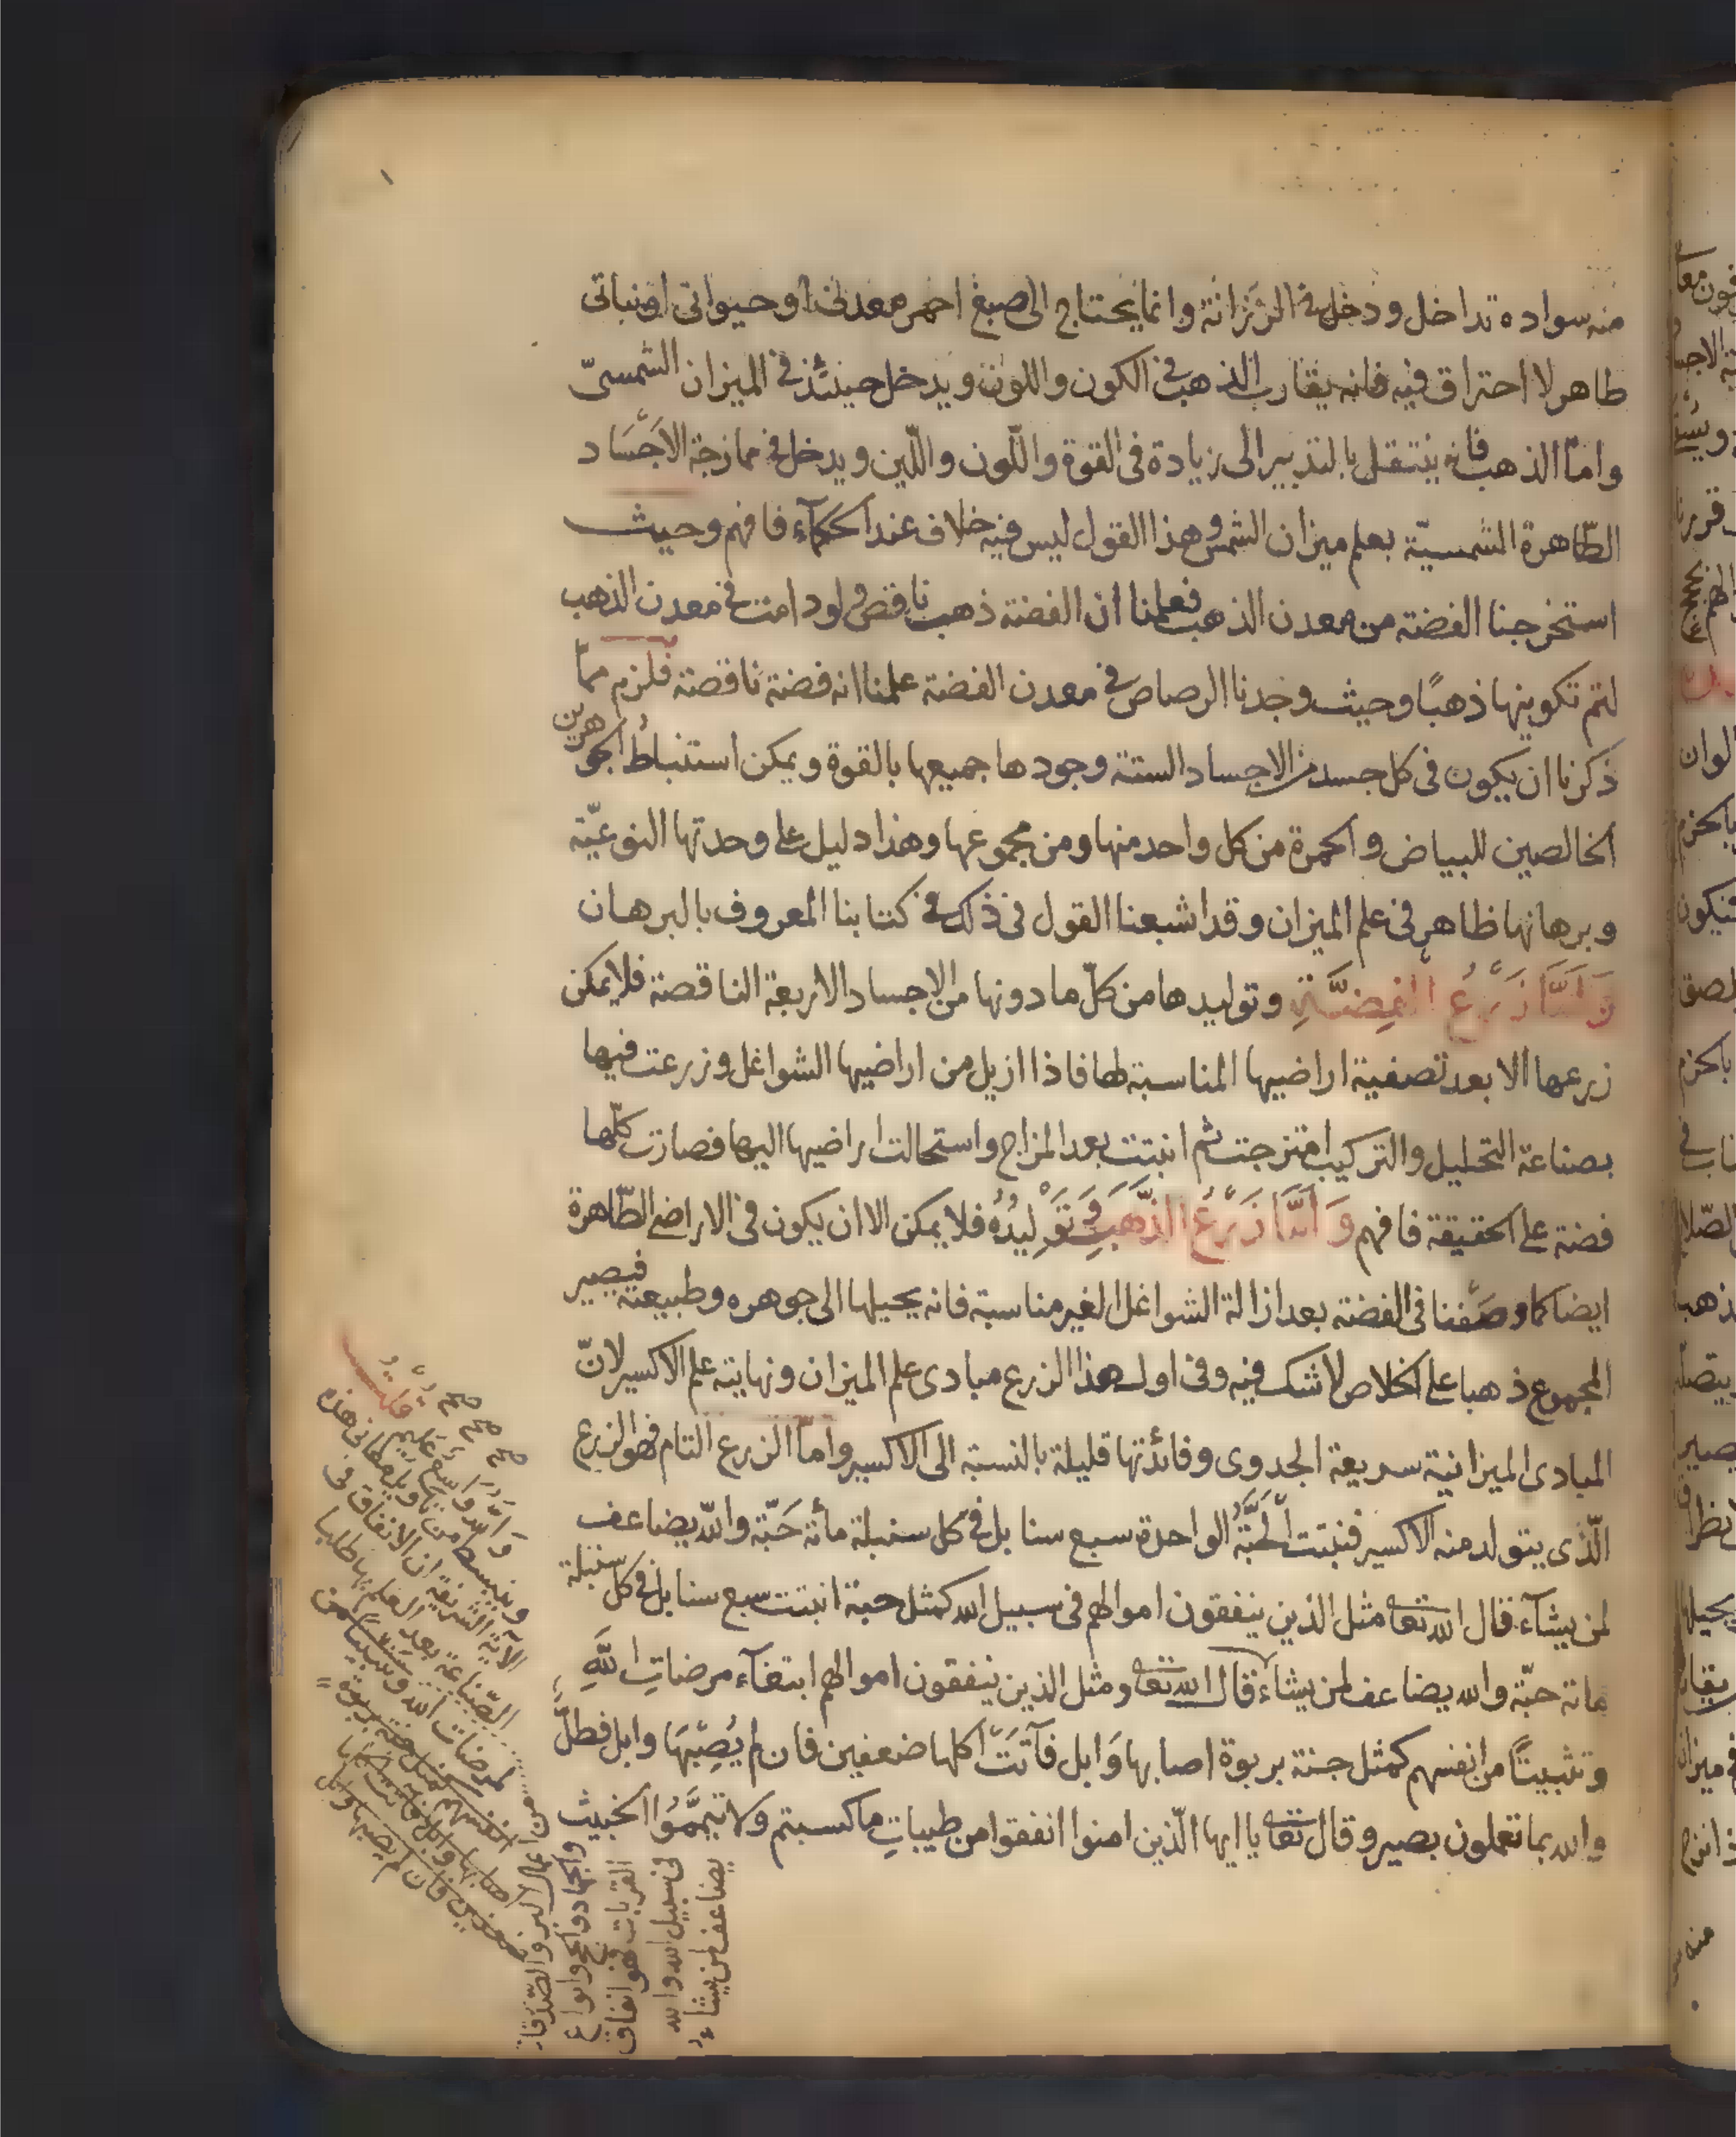 منه سواده تداخل ودخل في الرزانة وانما يحتاج الى صبغ احمر معدنى او حيوانى او نباتى
طاهر لا احتراق فيه فانه يقارب الذهب فى الكون واللون ويدخل حينئذ فى الميزان الشمسىّ
وامّا الذهب فانه ينتقل بالتدبير الى زيادة فى القوة واللّون واللّين ويدخل فى ممازجة الاجساد
الطّاهرة الشمسيّة بعلم ميزان الشمس وهذا القول ليس فيه خلاف عند الحكمآء فافهم وحيث
استخرجنا الفضة من معدن الذهب فعلمنا ان الفضة ذهب ناقص ولو دامت فى معدن الذهب
لتم تكوينها ذهبًا وحيث وجدنا الرصاص فى معدن الفضة علمنا انه فضة ناقصة فلزم ممّا
ذكرنا ان يكون فى كل جسد من الاجساد الستة وجودها جميعها بالقوة ويمكن استنباط الجوهرين
الخالصين للبياض والحمرة من كل واحد منها ومن مجموعها وهذا دليل على وحدتها النوعيّة
وبرهانها ظاهر فى علم الميزان وقد اشبعنا القول فى ذلك فى كتابنا المعروف بالبرهان
وَامَّا زَرْعُ الفِضَّةِ وتوليدها من كلّ ما دونها من الاجساد الاربعة الناقصة فلا يمكن
زرعها الا بعد تصفية اراضيها المناسبة لها فاذا ازيل من اراضيها الشواغل وزرعت فيها
بصناعة التحليل والتركيب امتزجت ثم انبتت بعد المزاج واستحالت اراضيها اليها فصارت كلّها
فضة على الحقيقة فافهم وَامَّا زَرْعُ الذَّهَبِ وَتَوْلِيدُهُ فلا يمكن الا ان يكون فى الاراضى الطّاهرة
ايضا كما وصفنا فى الفضة بعد ازالة الشواغل الغير مناسبة فانه يحيلها الى جوهره وطبيعته فيصير
المجموع ذهبا على الخلاص لا شك فيه وفى اول هذا الزرع مبادى علم الميزان ونهايته علم الاكسير لانّ
المبادى الميزانية سريعة الجدوى وفائدتها قليلة بالنسبة الى الاكسير وامّا الزرع التام فهو الزرع
الّذى يتولد منه الاكسير فنبتت الحَبَّةُ الواحدة سبع سنابل فى كل سنبلة مائة حَبّة والله يضاعف
لمن يشآء قال الله تعا مثل الذين ينفقون اموالهم فى سبيل الله كمثل حبة انبتت سبع سنابل فى كل سنبلة
مائة حبّة والله يضاعف لمن يشاء قال الله تعا ومثل الذين ينفقون اموالهم ابتغآء مرضاتِ اللّٰهِ
وتثبيتًا من انفسهم كمثل جنة بربوة اصابها وَابل فآتَتْ اكلها ضعفين فان لم يُصِبْهَا وابل فطلّ
والله بما تعملون بصير وقال تعا يا ايها الّذين امنوا انفقوا من طيباتِ ما كسبتم ولا تيمَّمُوا الخبيث
صح صح صح
والله واسع عليم قلت
ونبسط من تأويل معانى هذه
الآية الشريفة ان الانفاق فى
الصّناعة بعد العلم بها طلبا
لمرضات الله وتثبيتا من
انفسهم كمثل جنة بربوة
اصابها وابل فآتت اكلها
ضعفين فان لم يصبها وابل
من اعمال البرّ والصّدقات
والجهاد والحج وانواع
القربات فهو انفاق
فى سبيل الله والله
يضاعف لمن يشاء